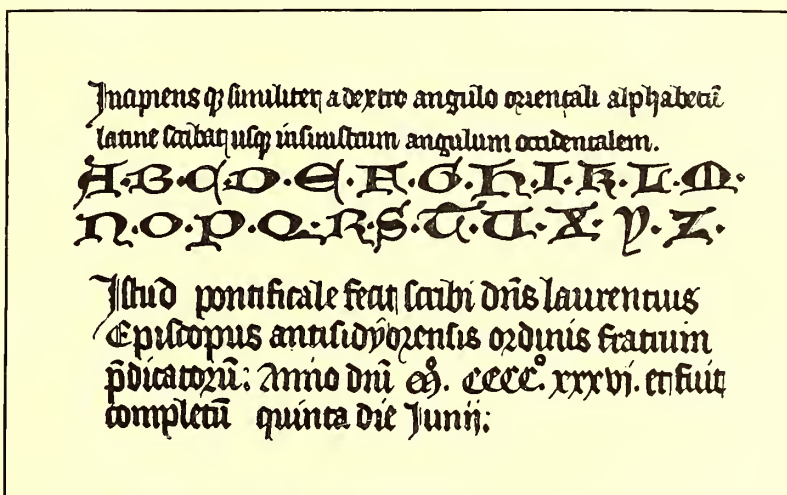 Incipiens qꝫ similiter a dextro angulo orientali alphabetū
latine scribat usq insinistrum angulum occidentalem.
A·B·C·D·E·F·G·H·I·K·L·M·
N·O·P·Q·R·S·T·U·X·Y·Z·
Istud pontificale fecit scribi dn̄s laurentius
Episcopus antisidyorensis ordinis fratrum
p̄dicatorū: Anno dn̄i Mº. CCCCº. xxxvi. et fuit
completū quinta die Junij: